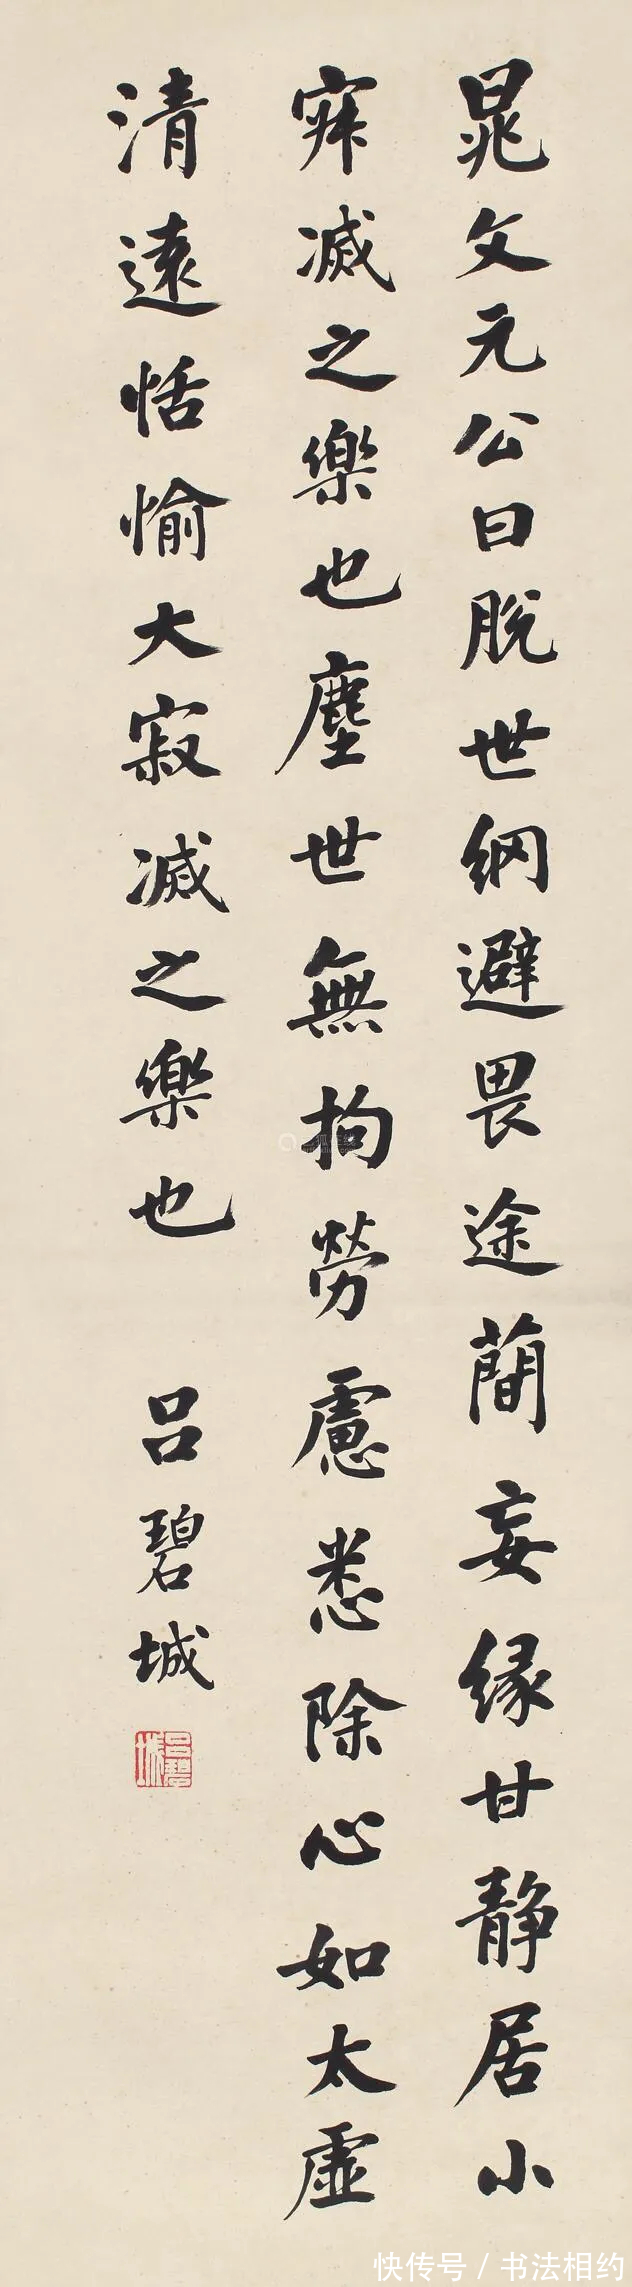 晁文元公曰脫世網避畏途蕳妄緣甘静居小
寂滅之樂也塵世無拘勞慮悉除心如太虛
清遠恬愉大寂滅之樂也
吕碧城
吕碧城
快传号/书法相约